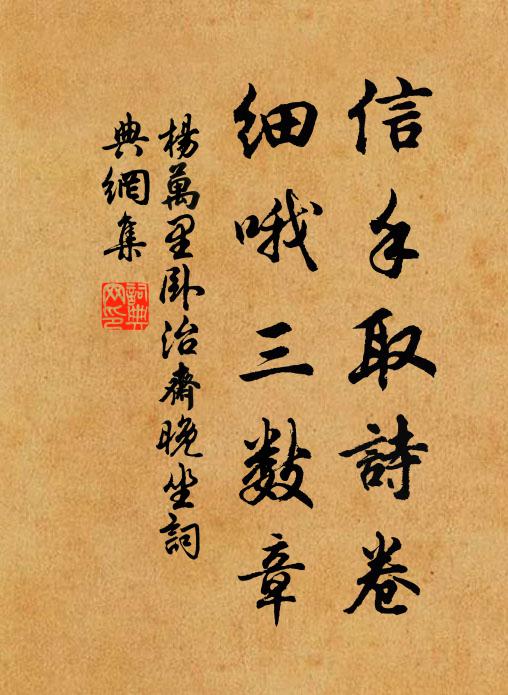 信手取詩卷
細哦三數章
楊萬里卧治齋晚坐詞
典網集
詞典
网印